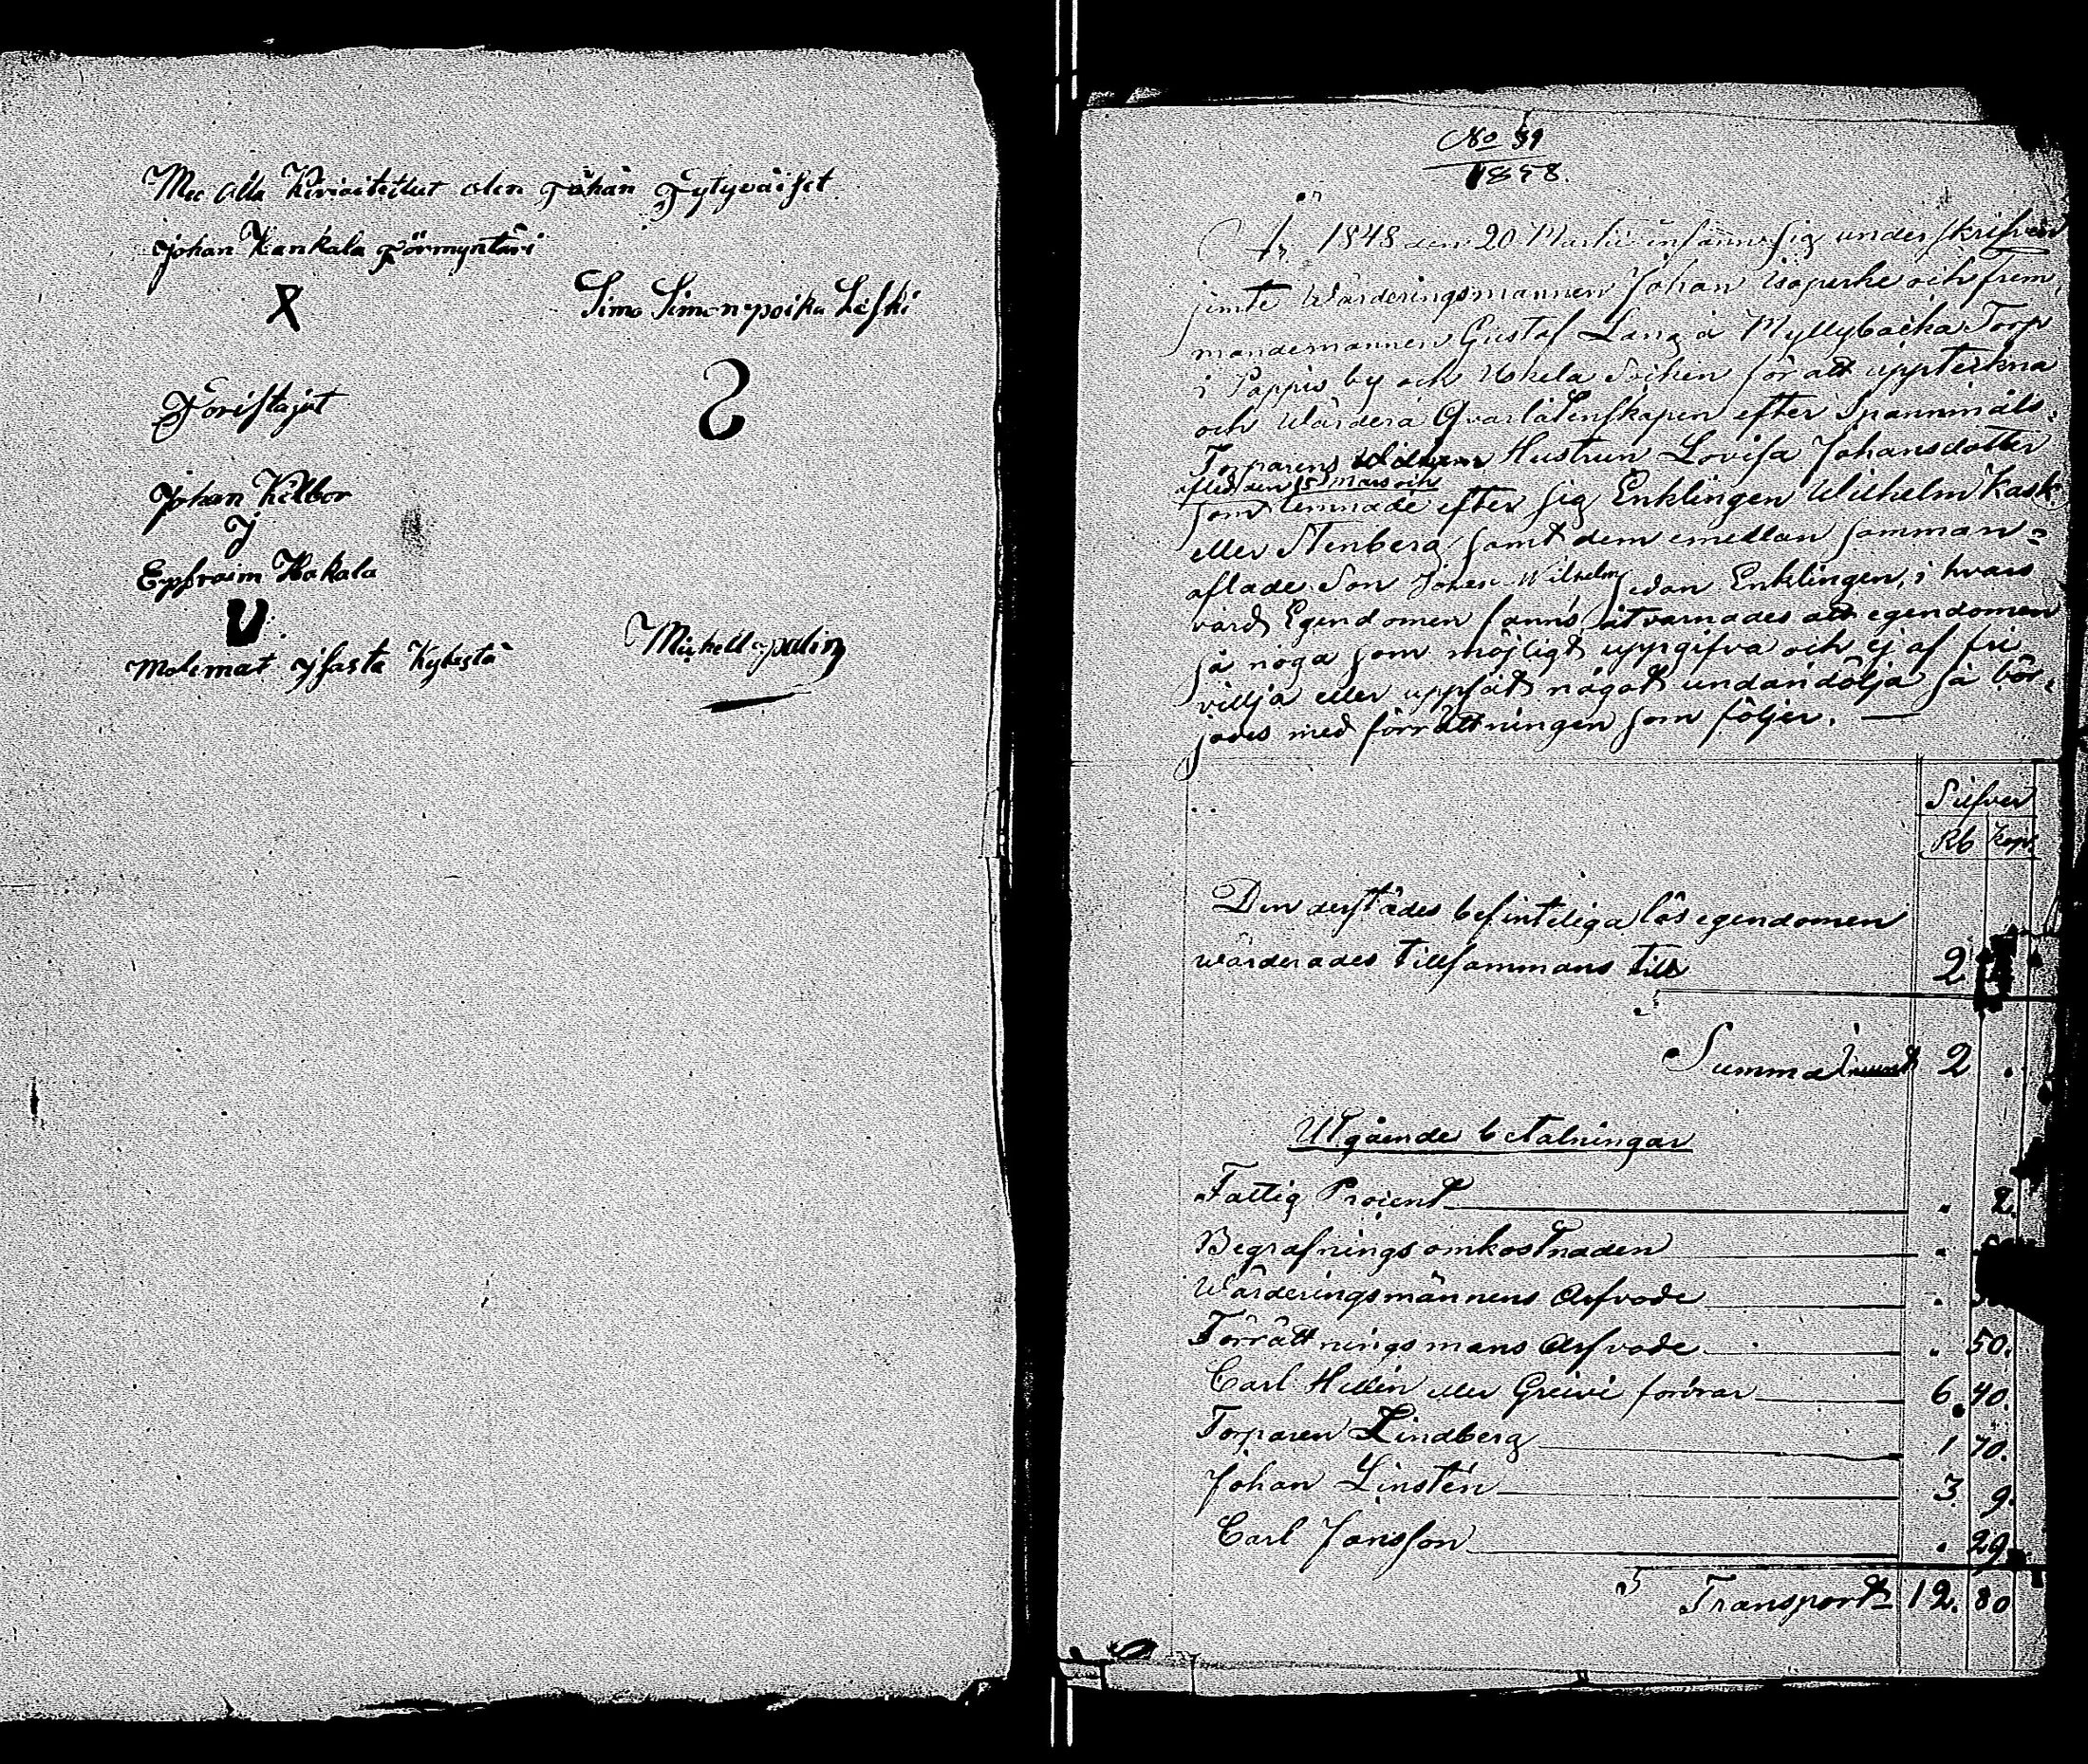 Mee alla Kirioitettut olen Tähän Tytyväiset
Johan Kankala Förmyntäri
X
Simo Simonpoika Leski
Toristajat
Johan Killbor
J
Ephraim Hakala
U
Molemat Jsasta Kylestä
Mickell
No 39
1848.
År 1848 den 20 Martii infann sig underskrifven
jemte Wärderingsmannen Johan Isoperhe och frem
mandemannen Gustaf Lang å Myllybacka Torp
i Pappis by och Ukela Sochen för att upptekna
och Wärdera Qvarlåtenskapen efter Spannmåls
Torparens Hustrun Lovisa Johansdotter
afled den Mars och
som lemnade efter sig Enklingen Wilhelm Kask
eller Stenberg samt dem emellan samman=
aflade Son Johan Wilhelm sedan Enklingen, i hvars
vård Egendomen fanns åtvarnades att egendomen
så noga som möjligt uppgifva och ej af fri
villja eller uppsåt något undandölja så bör,
jades med förrättningen som följer. —
Silfver
Rb Kop.
Den derstädes befinteliga lösegendomen
wärderades tillsammans till 2
Summa 2 .
Utgående betalningar
Fattig Procent . 2.
Begrafnings omkostnaden .
Wärderingsmännens Arfvode .
Förrättningsmans Arfvode . 50.
Carl Hellén eller Greivi fordrar 6. 40.
Torparen Lindberg 1 70.
Johan Linstén 3. 9.
Carl Jansson . 29
Transport 12. 80